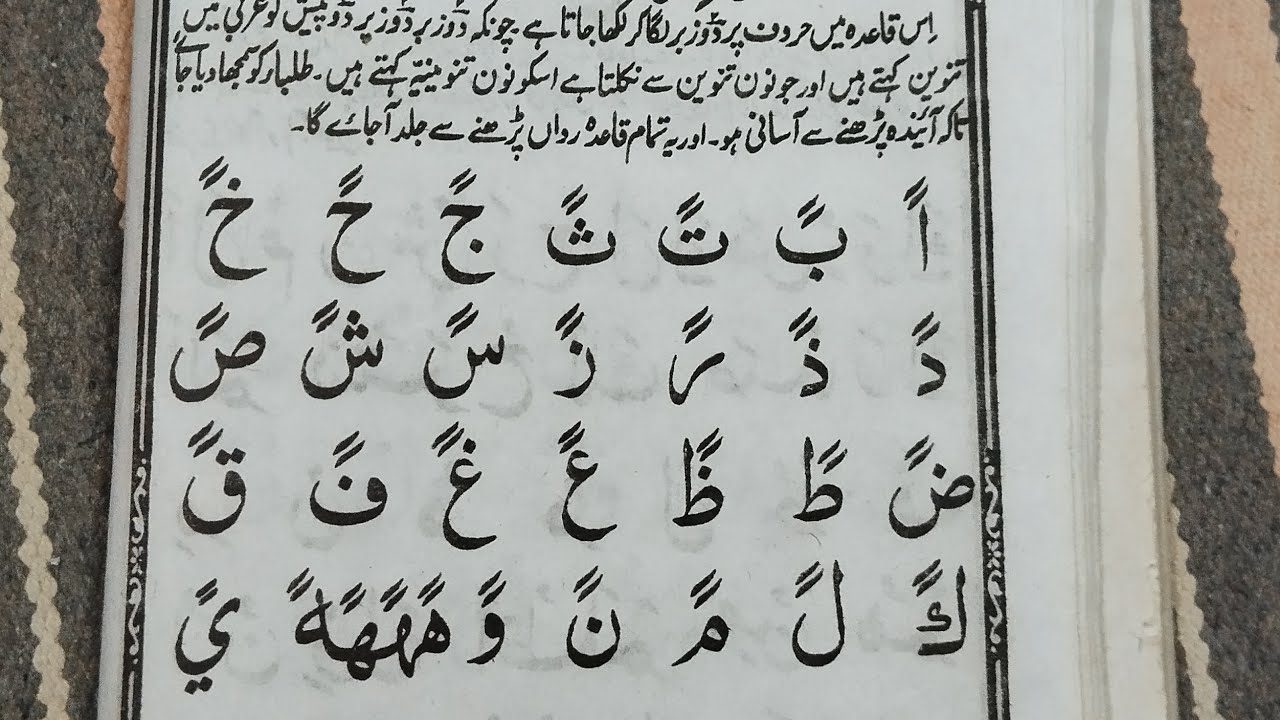 اِس قاعدہ میں حروف پر دَوْزبر لگا کر لکھا جاتا ہے۔ چونکہ دَوْزبر دَوْزیر دَوْپیش کو عربی میں
تنوین کہتے ہیں اور جو نون تنوین سے نکلتا ہے اسکو نون تنوینیۃ کہتے ہیں۔ طلبار کو سمجھا دیا جائے
تاکہ آئندہ پڑھنے سے آسانی ہو۔ اور یہ تمام قاعدہ رواں پڑھنے سے جلد آجائے گا۔
اً بً تً ثً جً حً خً
دً ذً رً زً سً شً صً
ضً طً ظً عً غً فً قً
كً لً مً نً وً هًهًهًهً يً